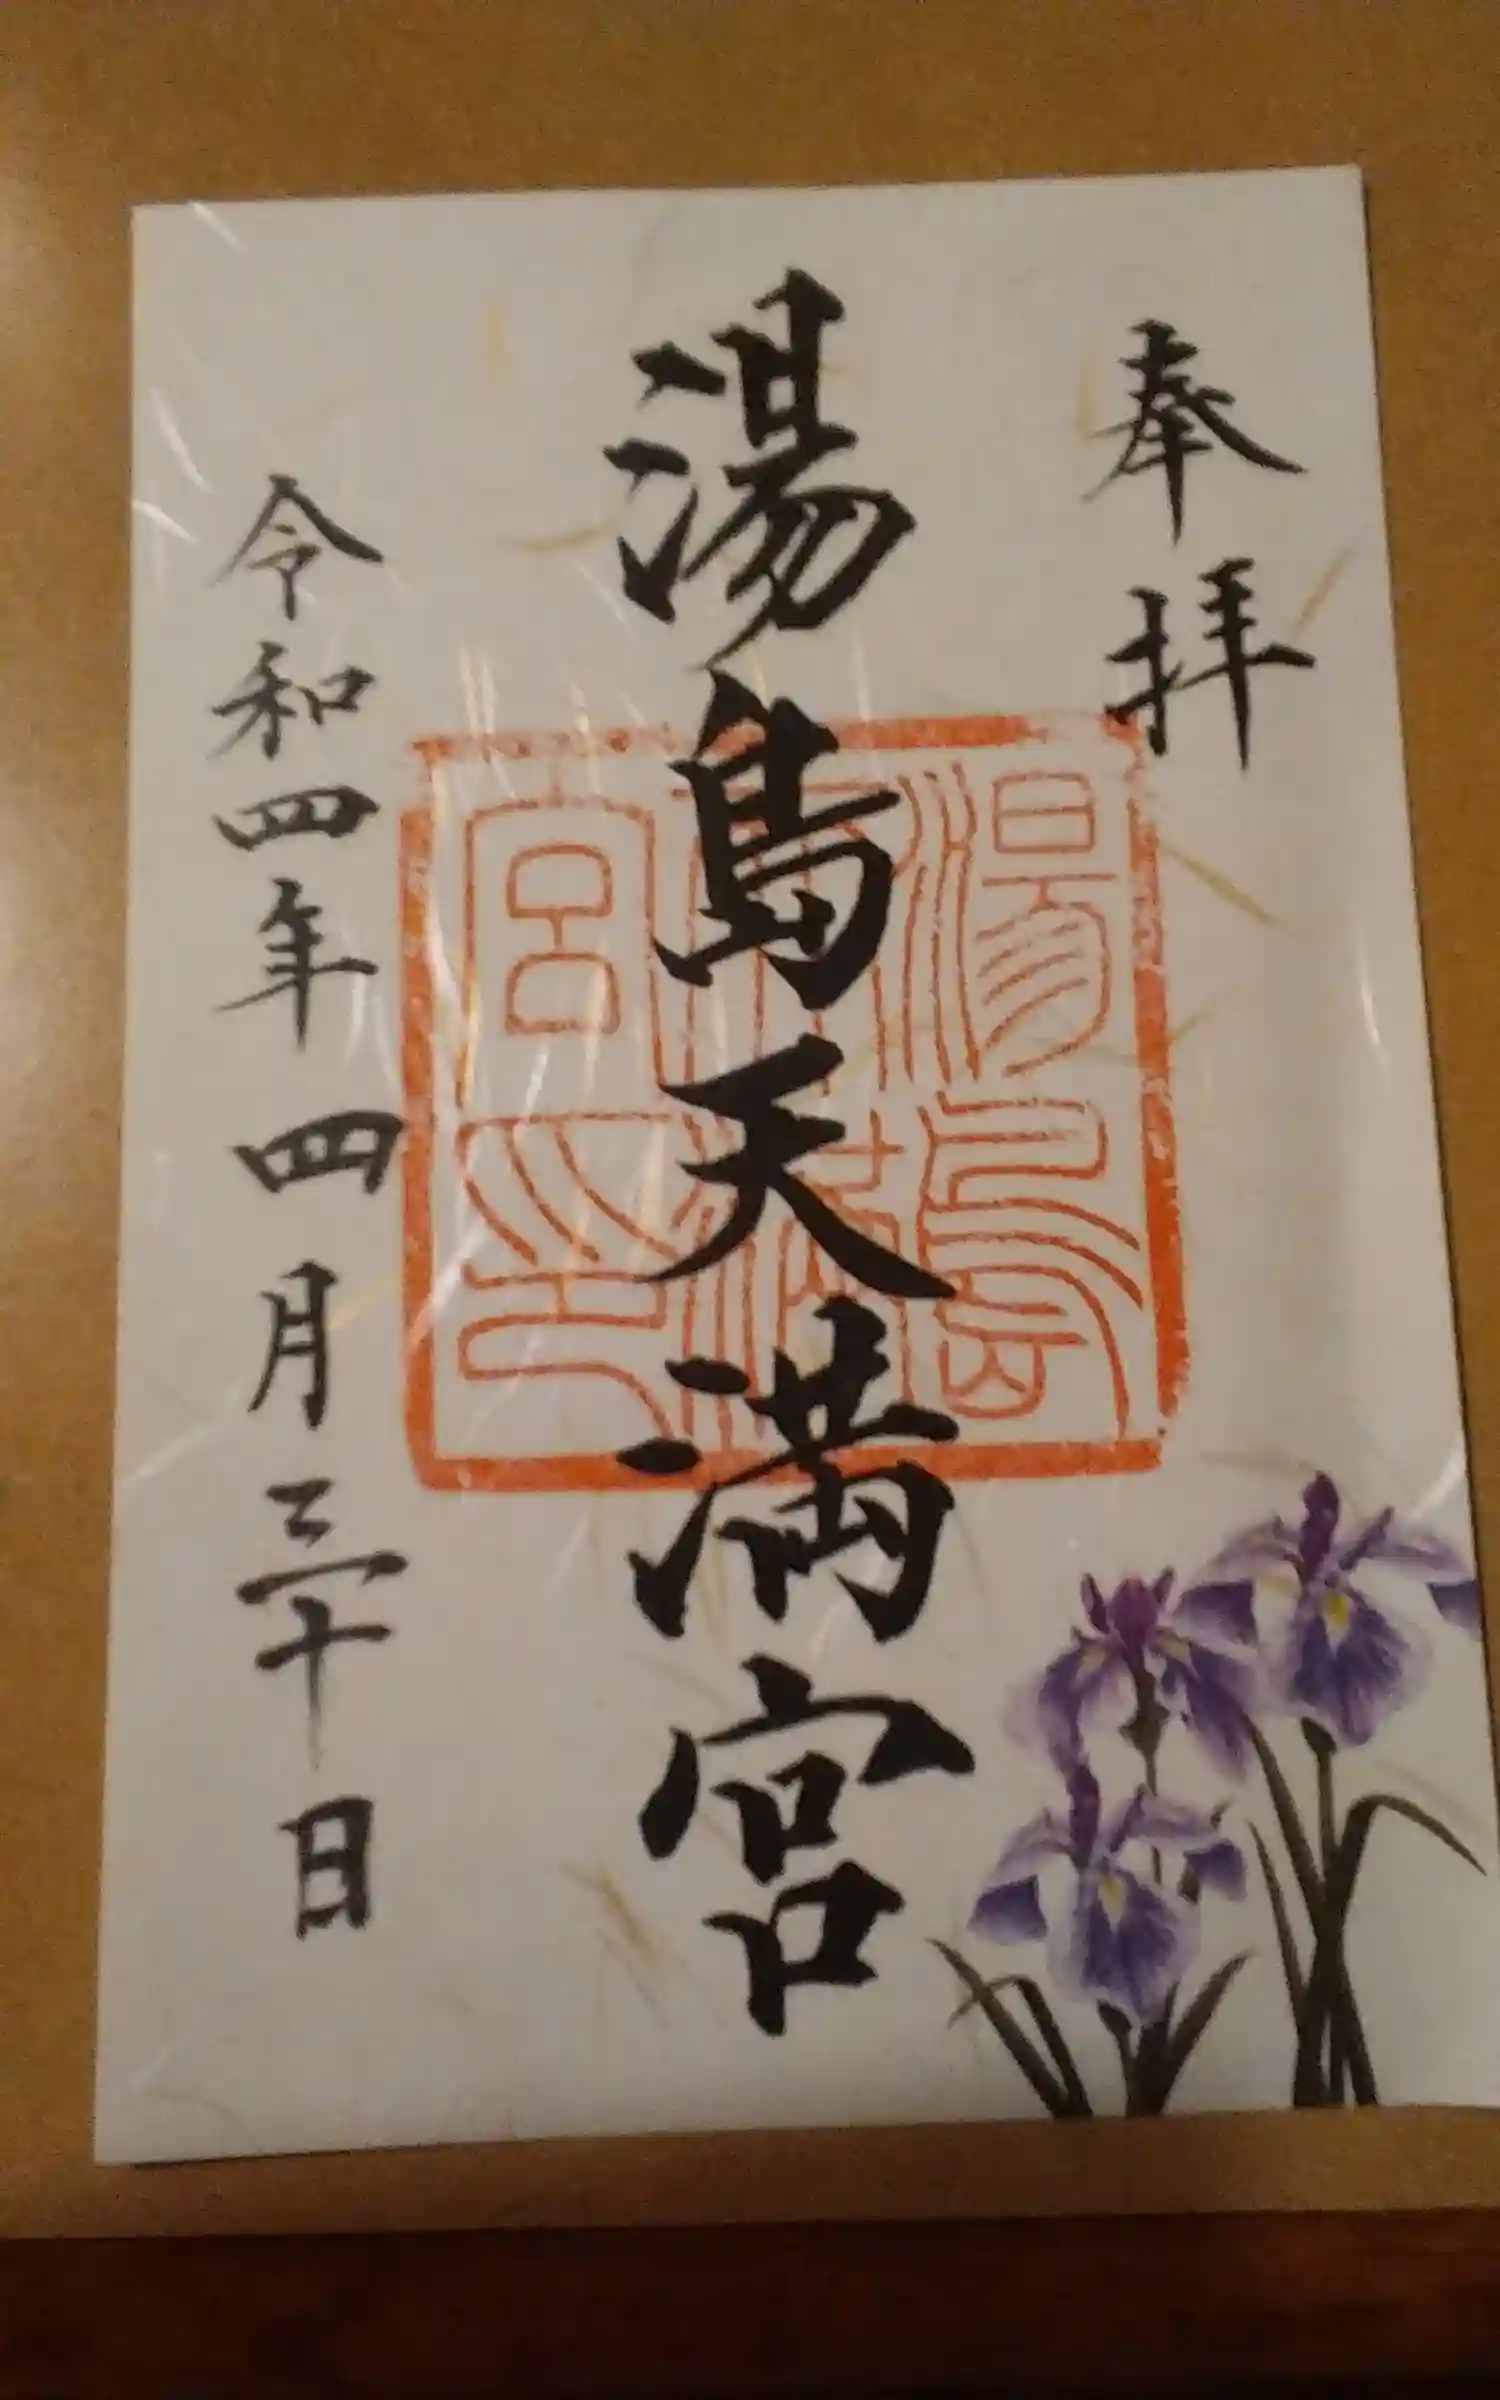 奉拝
湯島天満宮
令和四年四月三十日
湯島
天満
宮印